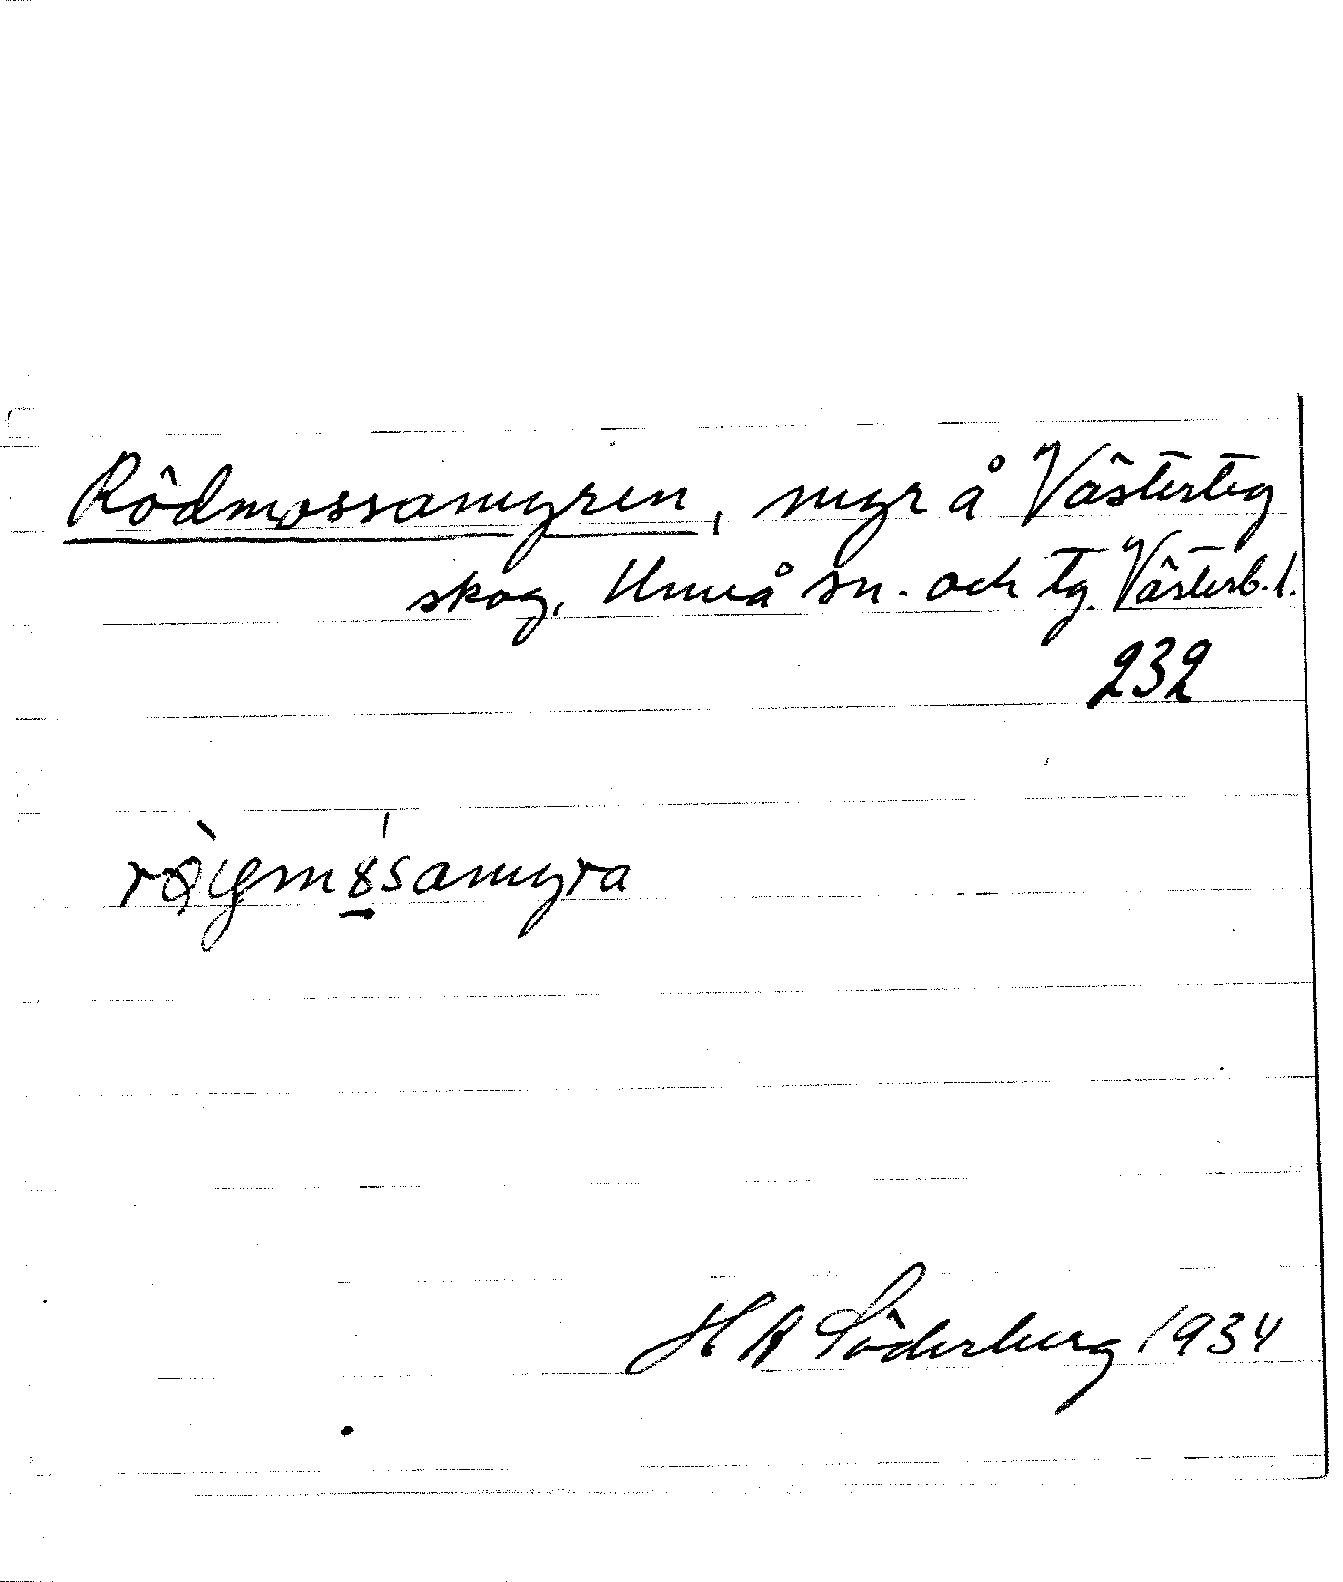 Rödmossamyren, myr å Västerteg
skog, Umeå sn. och tg. Västerb. l.
232
H A Söderberg 1934